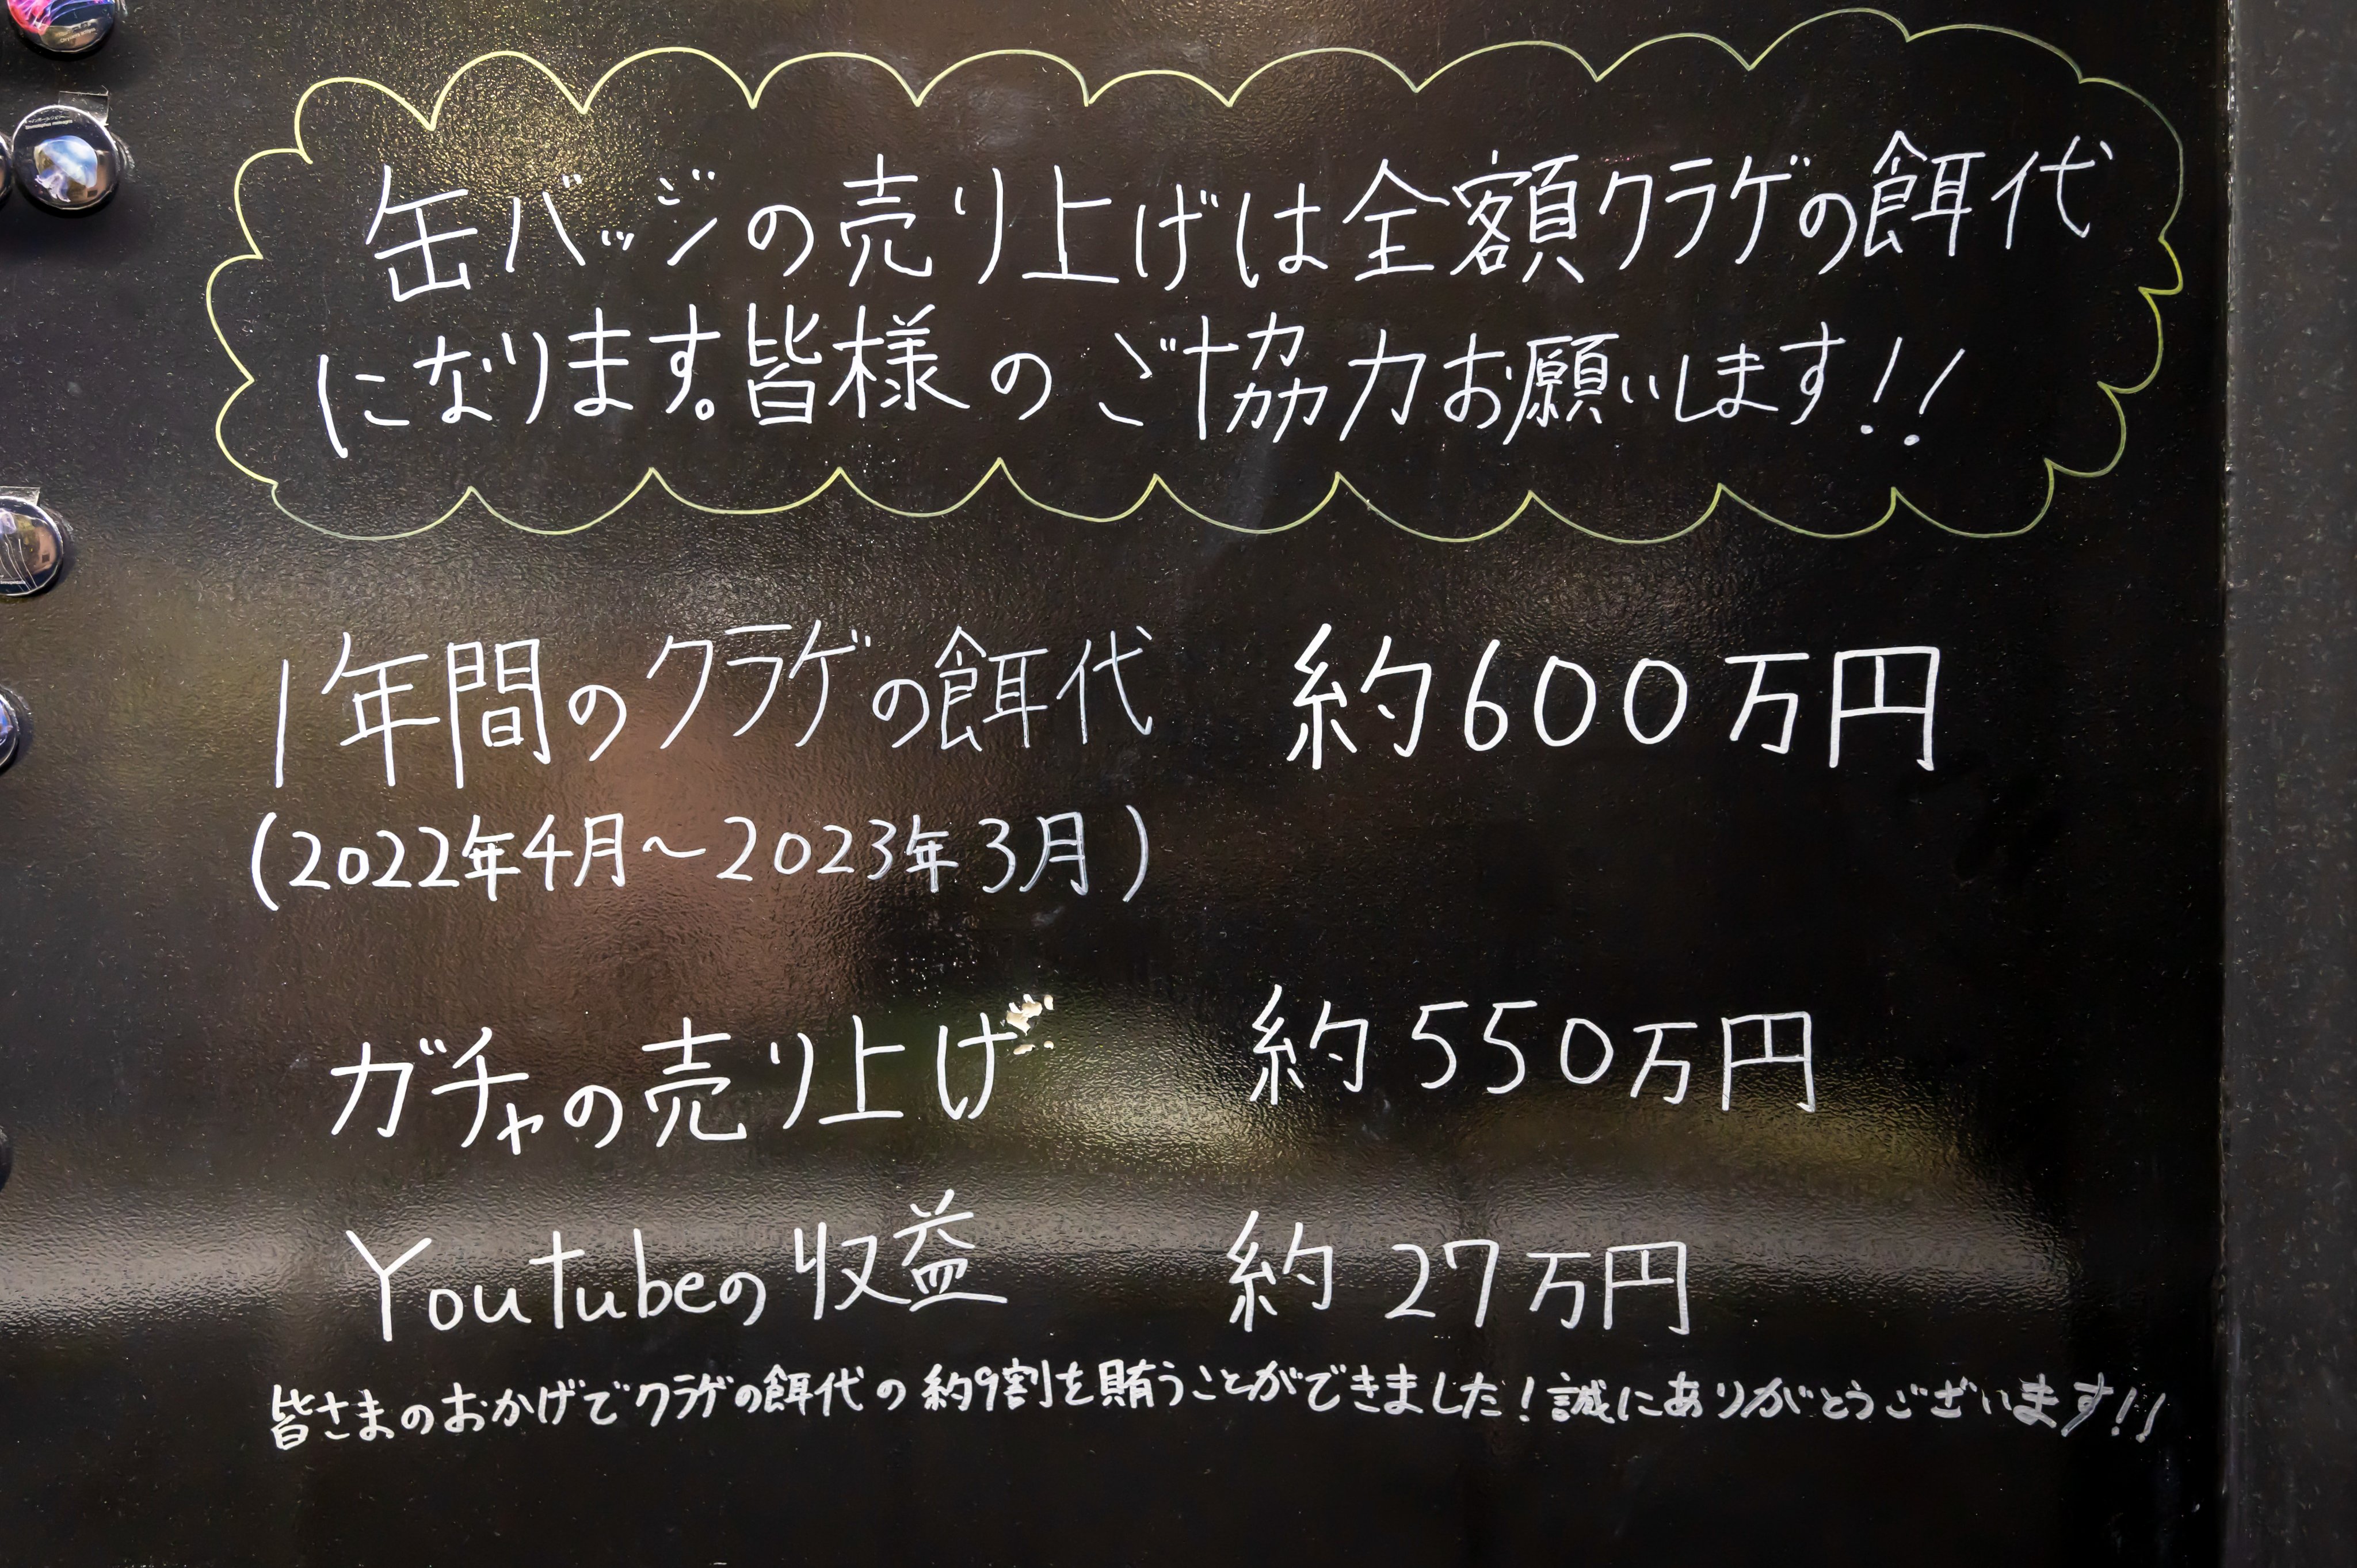 缶バッジの売り上げは全額クラゲの餌代
になります。皆様のご協力お願いします!!
1年間のクラゲの餌代 約600万円
(2022年4月～2023年3月)
ガチャの売り上げ 約550万円
Youtubeの収益 約27万円
皆さまのおかげでクラゲの餌代の約9割を賄うことができました!誠にありがとうございます!!